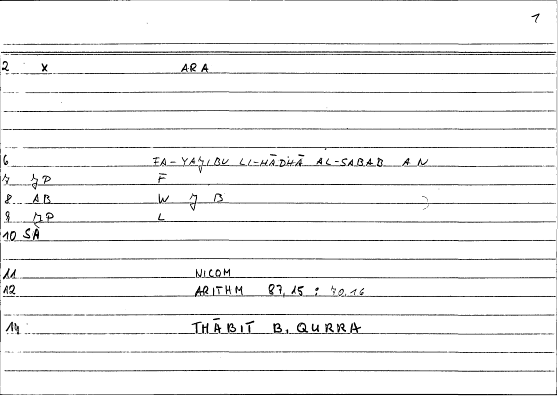 1
2 X ARA
6 FA-YAJIBU LI-HĀDHĀ AL-SABAB AN
7 JP F
8 AB W J B )
9 JP L
10 SA
11 NICOM
12 ARITHM 87,15 : 70,16
14 THĀBIT B. QURRA